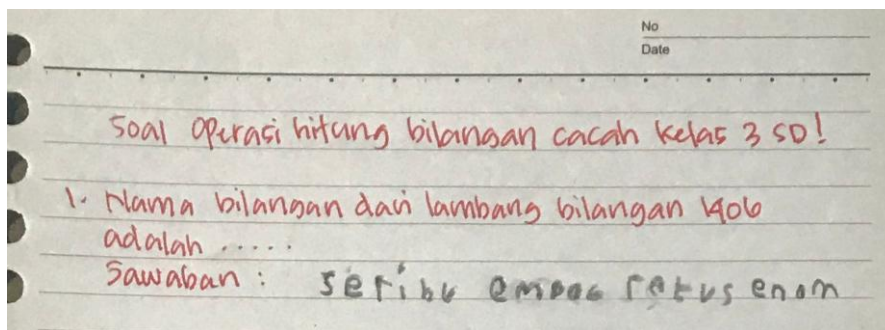 No
Date
Soal operasi hitung bilangan cacah kelas 3 SD!
1. Nama bilangan dari lambang bilangan 1406
adalah .....
Jawaban : seribu empat ratus enam